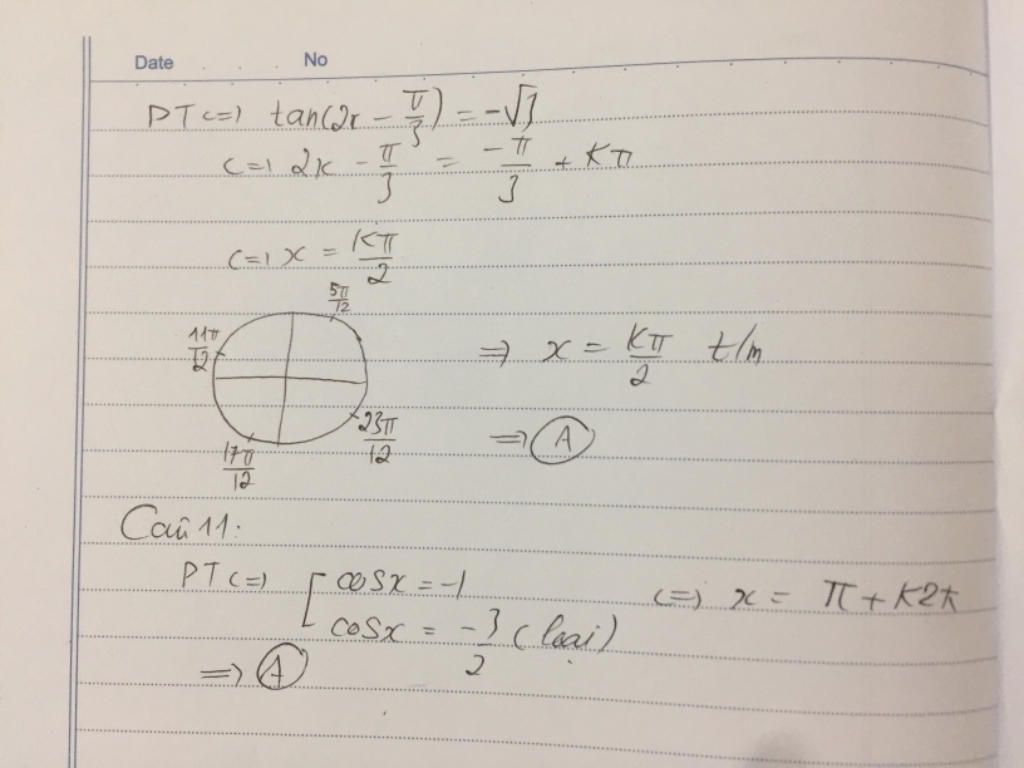 Date No
PT <=> tan(2x - π/3) = -√3
<=> 2x - π/3 = -π/3 + kπ
<=> x = kπ/2
5π/12
11π/12
=> x = kπ/2 t/m
23π/12
=> A
17π/12
Câu 11:
PT <=> [ cosx = -1
cosx = -3/2 (loại)
<=> x = π + k2π
=> A